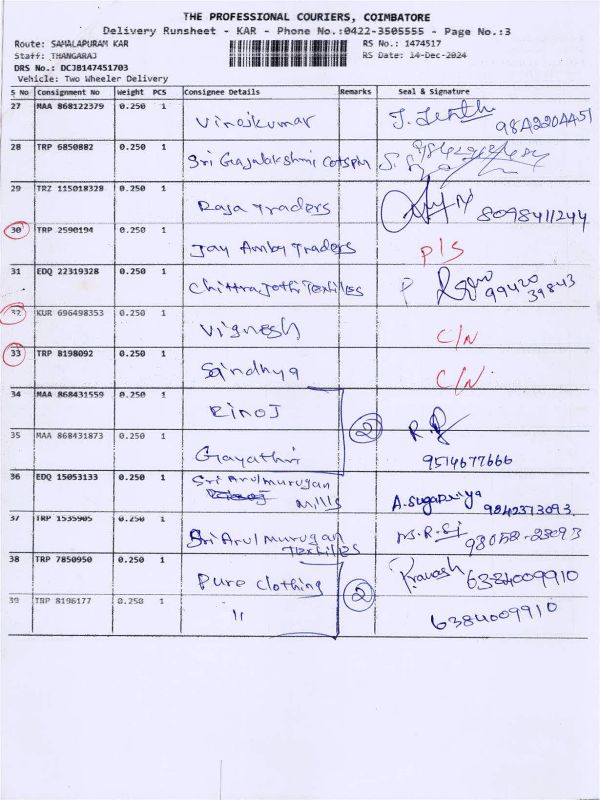 THE PROFESSIONAL COURIERS, COIMBATORE
Delivery Runsheet - KAR - Phone No.:0422-3505555 - Page No.:3
Route: SAMALAPURAM KAR RS No.: 1474517
Staff: THANGARAJ RS Date: 14-Dec-2024
DRS No.: DCJB147451703
Vehicle: Two Wheeler Delivery
S No Consignment No Weight PCS Consignee Details Remarks Seal & Signature
27 MAA 868122379 0.250 1 Vinojkumar
28 TRP 6850882 0.250 1 Sri Gajalakshmi Cotspin
29 TRZ 115018328 0.250 1 Raja Traders 8098411244
30 TRP 2590194 0.250 1 Jay Amby Traders P/S
31 EDQ 22319328 0.250 1 Chittrajothi Textiles 99420
39843
32 KUR 696498353 0.250 1 Vignesh C/N
33 TRP 8198092 0.250 1 Sandhya C/N
34 MAA 868431559 0.250 1 Rinoj
2
35 MAA 868431873 0.250 1 Gayathri 9514677666
36 EDQ 15053133 0.250 1 Sri Arulmurugan
Mills A.Sugapriya 9842373093
37 TRP 1535905 0.250 1 Sri Arulmurugan
Textiles
38 TRP 7850950 0.250 1 Pure Clothing 2 Pravash 6384009910
39 TRP 8196177 0.250 1 " 6384009910